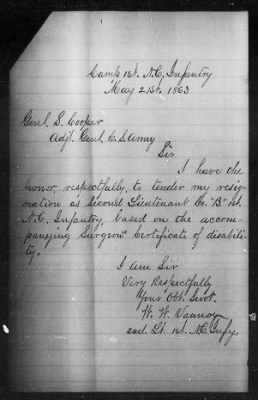 Camp 1st. N.C. Infantry
May 21st. 1863
Genl. S. Cooper
Adjt. Genl. C.S. Army
Sir
I have the
honor, respectfully, to tender my resig-
nation as Second Lieutenant Co. "B" 1st.
N.C. Infantry, based on the accom-
panying Surgeons Certificate of disabili-
ty.
I Am Sir
Very Respectfully
Your Obt. Servt.
W. W. Vannoy
2nd. Lt. 1st. N.C. Infy